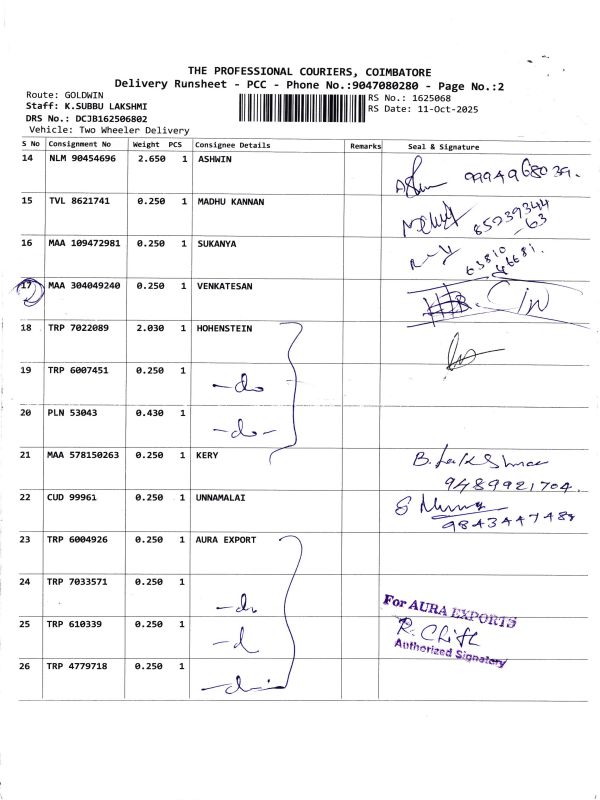 THE PROFESSIONAL COURIERS, COIMBATORE
Delivery Runsheet - PCC - Phone No.:9047080280 - Page No.:2
Route: GOLDWIN
Staff: K.SUBBU LAKSHMI
DRS No.: DCJB162506802
Vehicle: Two Wheeler Delivery
RS No.: 1625068
RS Date: 11-Oct-2025
S No Consignment No Weight PCS Consignee Details Remarks Seal & Signature
14 NLM 90454696 2.650 1 ASHWIN
15 TVL 8621741 0.250 1 MADHU KANNAN
16 MAA 109472981 0.250 1 SUKANYA
63810
17 MAA 304049240 0.250 1 VENKATESAN
18 TRP 7022089 2.030 1 HOHENSTEIN
19 TRP 6007451 0.250 1 -do
20 PLN 53043 0.430 1 -do-
21 MAA 578150263 0.250 1 KERY
9489921704.
22 CUD 99961 0.250 1 UNNAMALAI
23 TRP 6004926 0.250 1 AURA EXPORT
24 TRP 7033571 0.250 1 -do
25 TRP 610339 0.250 1 -d
26 TRP 4779718 0.250 1
For AURA EXPORTS
Authorized Signatory